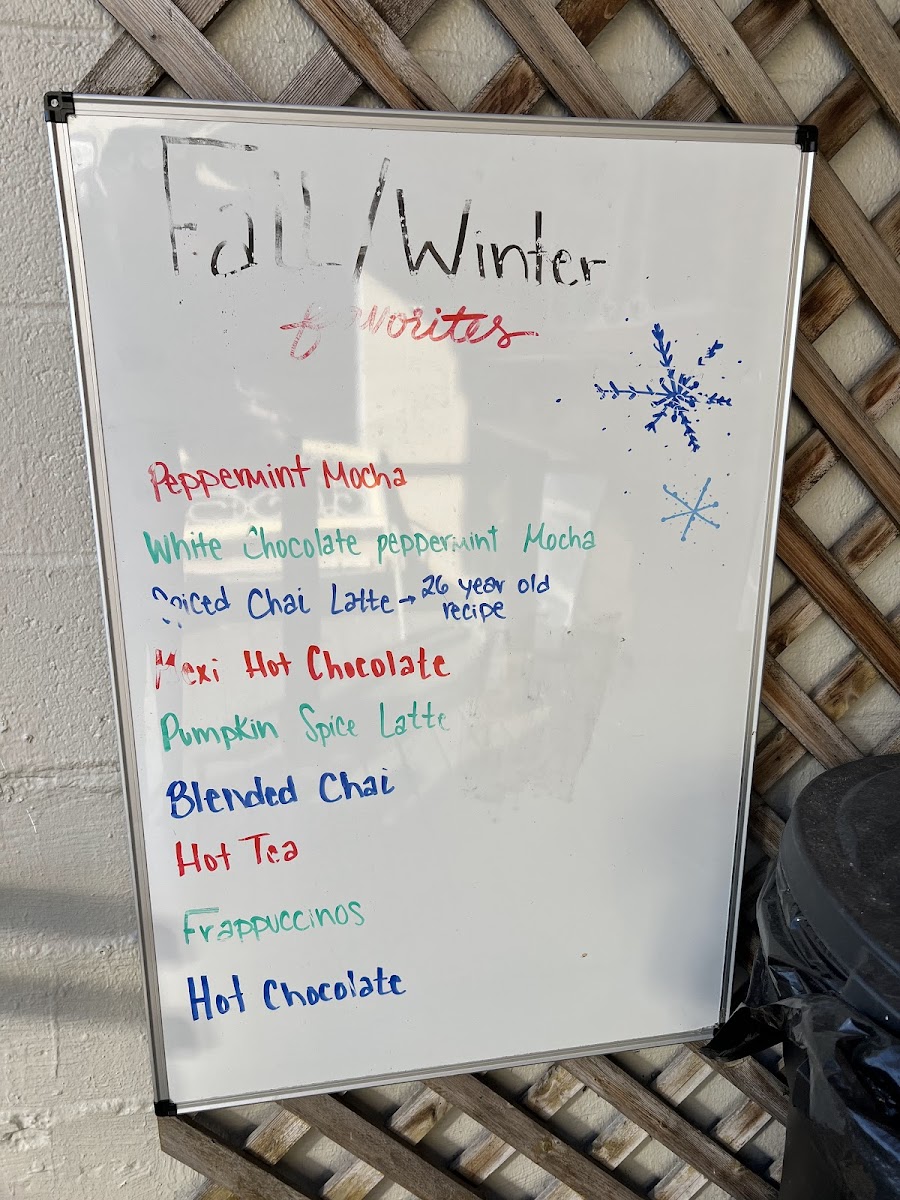 Fall/Winter
favorites
Peppermint Mocha
White Chocolate peppermint Mocha
Spiced Chai Latte → 26 year old
recipe
Mexi Hot Chocolate
Pumpkin Spice Latte
Blended Chai
Hot Tea
Frappuccinos
Hot Chocolate